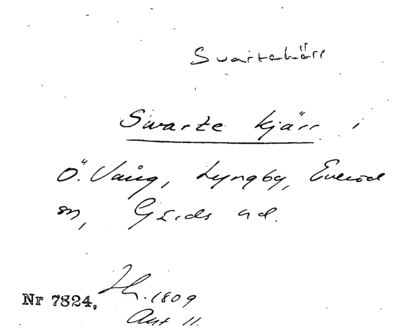 Svartekärr
Swarte kjärr i
Ö. Vång, Lyngby, Everöd
sn, Gärds hd.
Nr 7824. 1809
Akt 11.